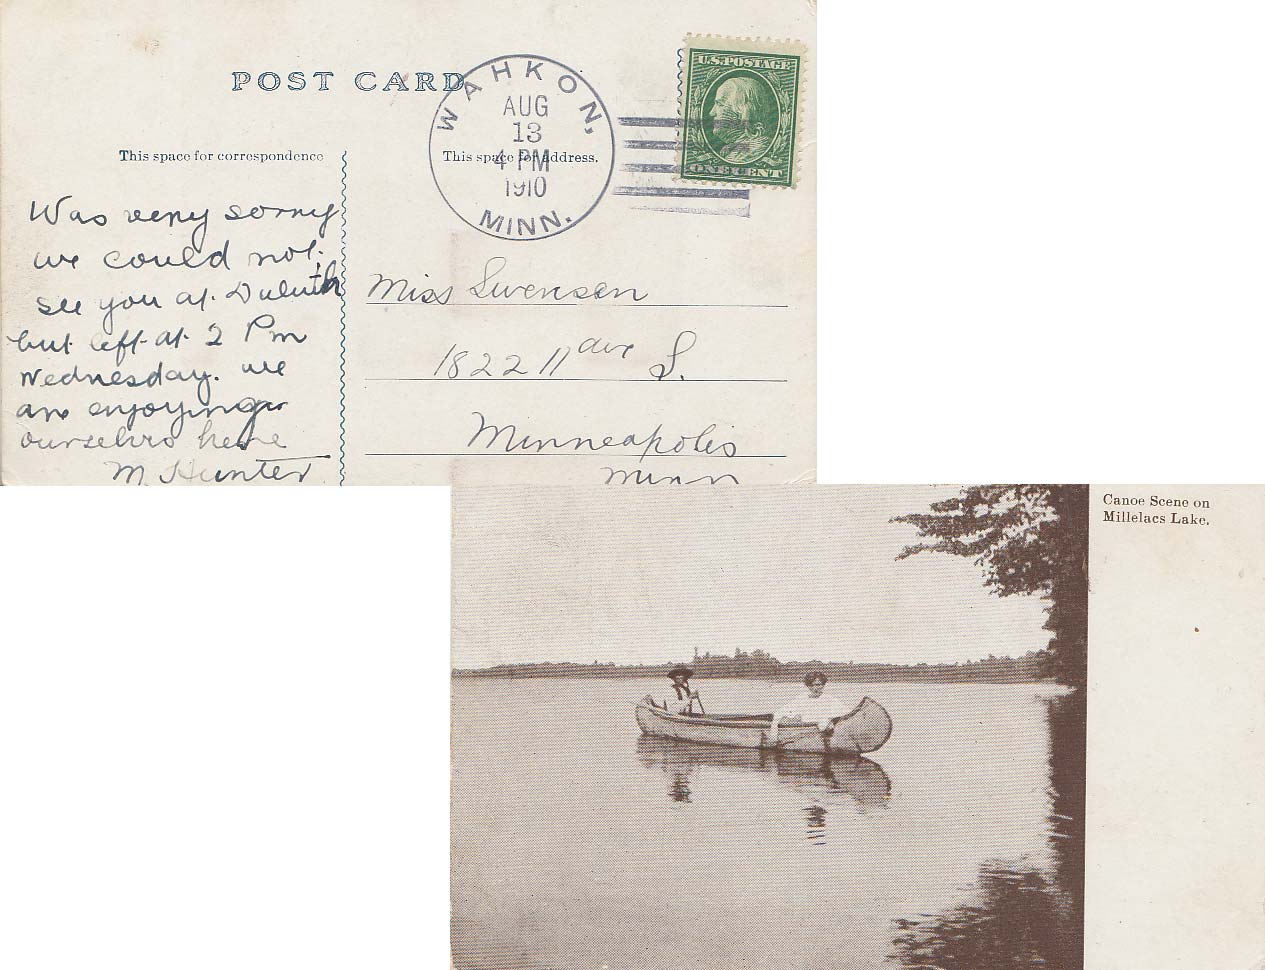 POST CARD
WAHKON,
AUG
13
4 PM
1910
MINN.
U.S. POSTAGE
ONE CENT
This space for correspondence
This space for address.
Was very sorry
we could not
see you at Duluth
but left at 2 Pm
Wednesday. we
are enjoying
ourselves here
M. Hunter
Miss Swensen
1822 11 ave S.
Minneapolis
Minn
Canoe Scene on
Millelacs Lake.